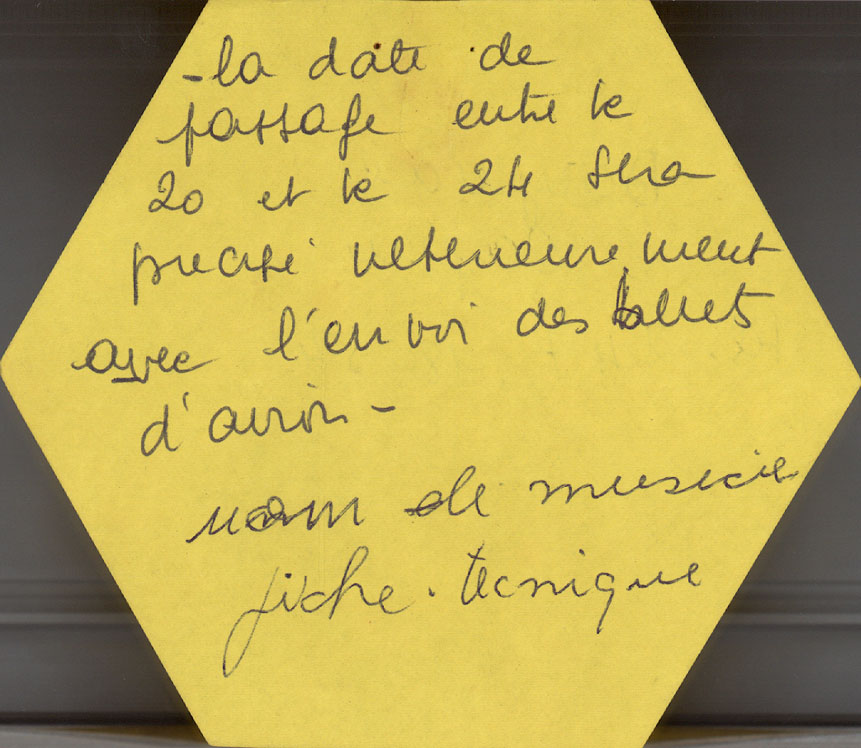 - la date de
passage entre le
20 et le 24 sera
precisé ulterieurement
avec l'envoi des billets
d'avion -
nom de musicie
fiche . tecnique